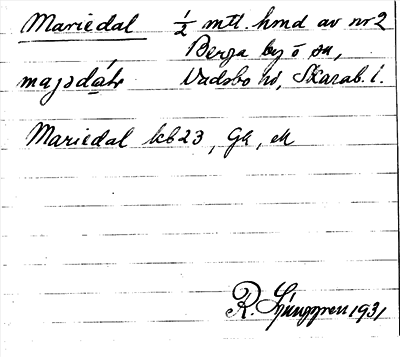 Mariedal ½ mtl. hmd av nr 2
Berga by i sn,
majsdàṱ Vadsbo hd, Skarab. l.
Mariedal kb 23, GK, ek
R. Ljunggren 1931